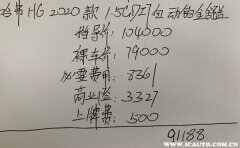 哈弗H6 2020款 1.5GDIT自动铂金舒
指导价: 104000
裸车价: 79000
必要费用: 8361
商业险: 3327
上牌费: 500
91188
WWW.ICAUTO.COM.CN